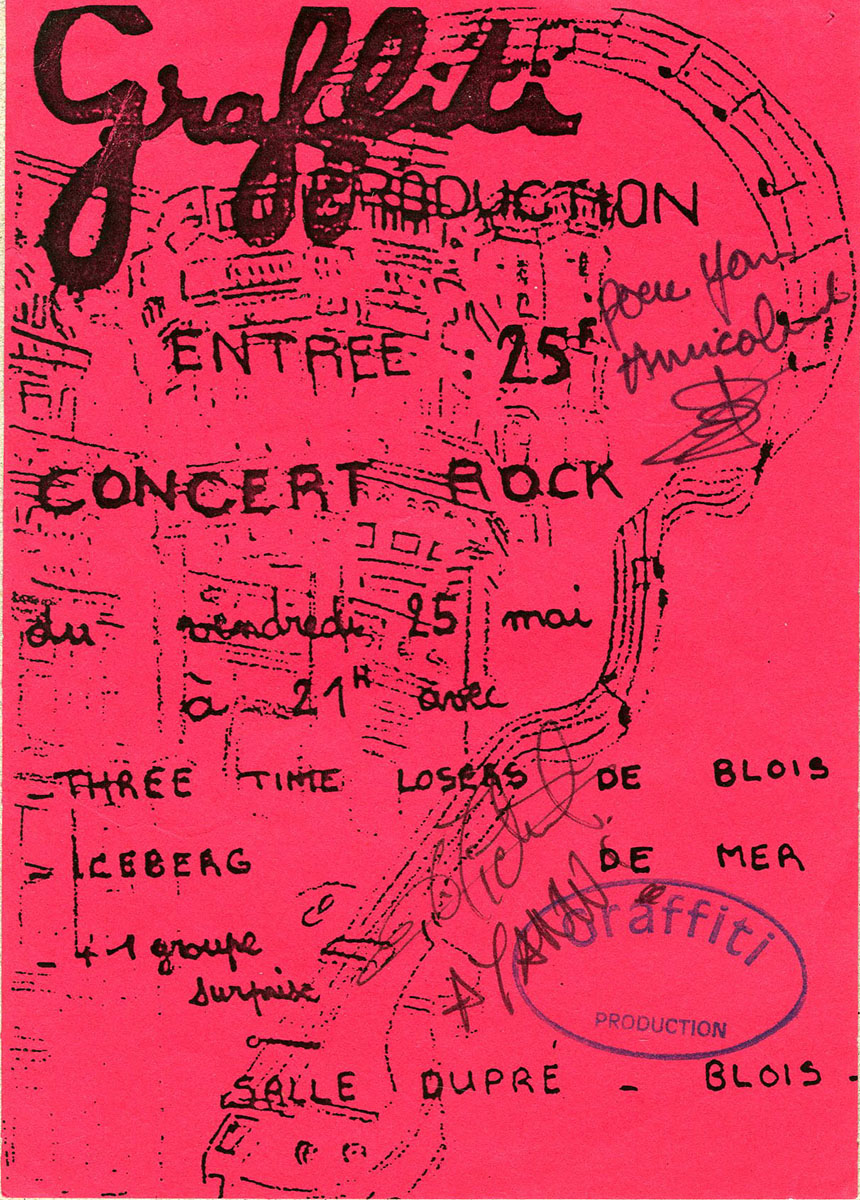 Graffiti
PRODUCTION
ENTREE : 25F
pour Yann
Amicalement
CONCERT ROCK
du vendredi 25 mai
à 21H avec
- THREE TIME LOSERS DE BLOIS
- ICEBERG DE MER
- + 1 groupe
surprise
A YANN
Graffiti
PRODUCTION
SALLE DUPRÉ - BLOIS -